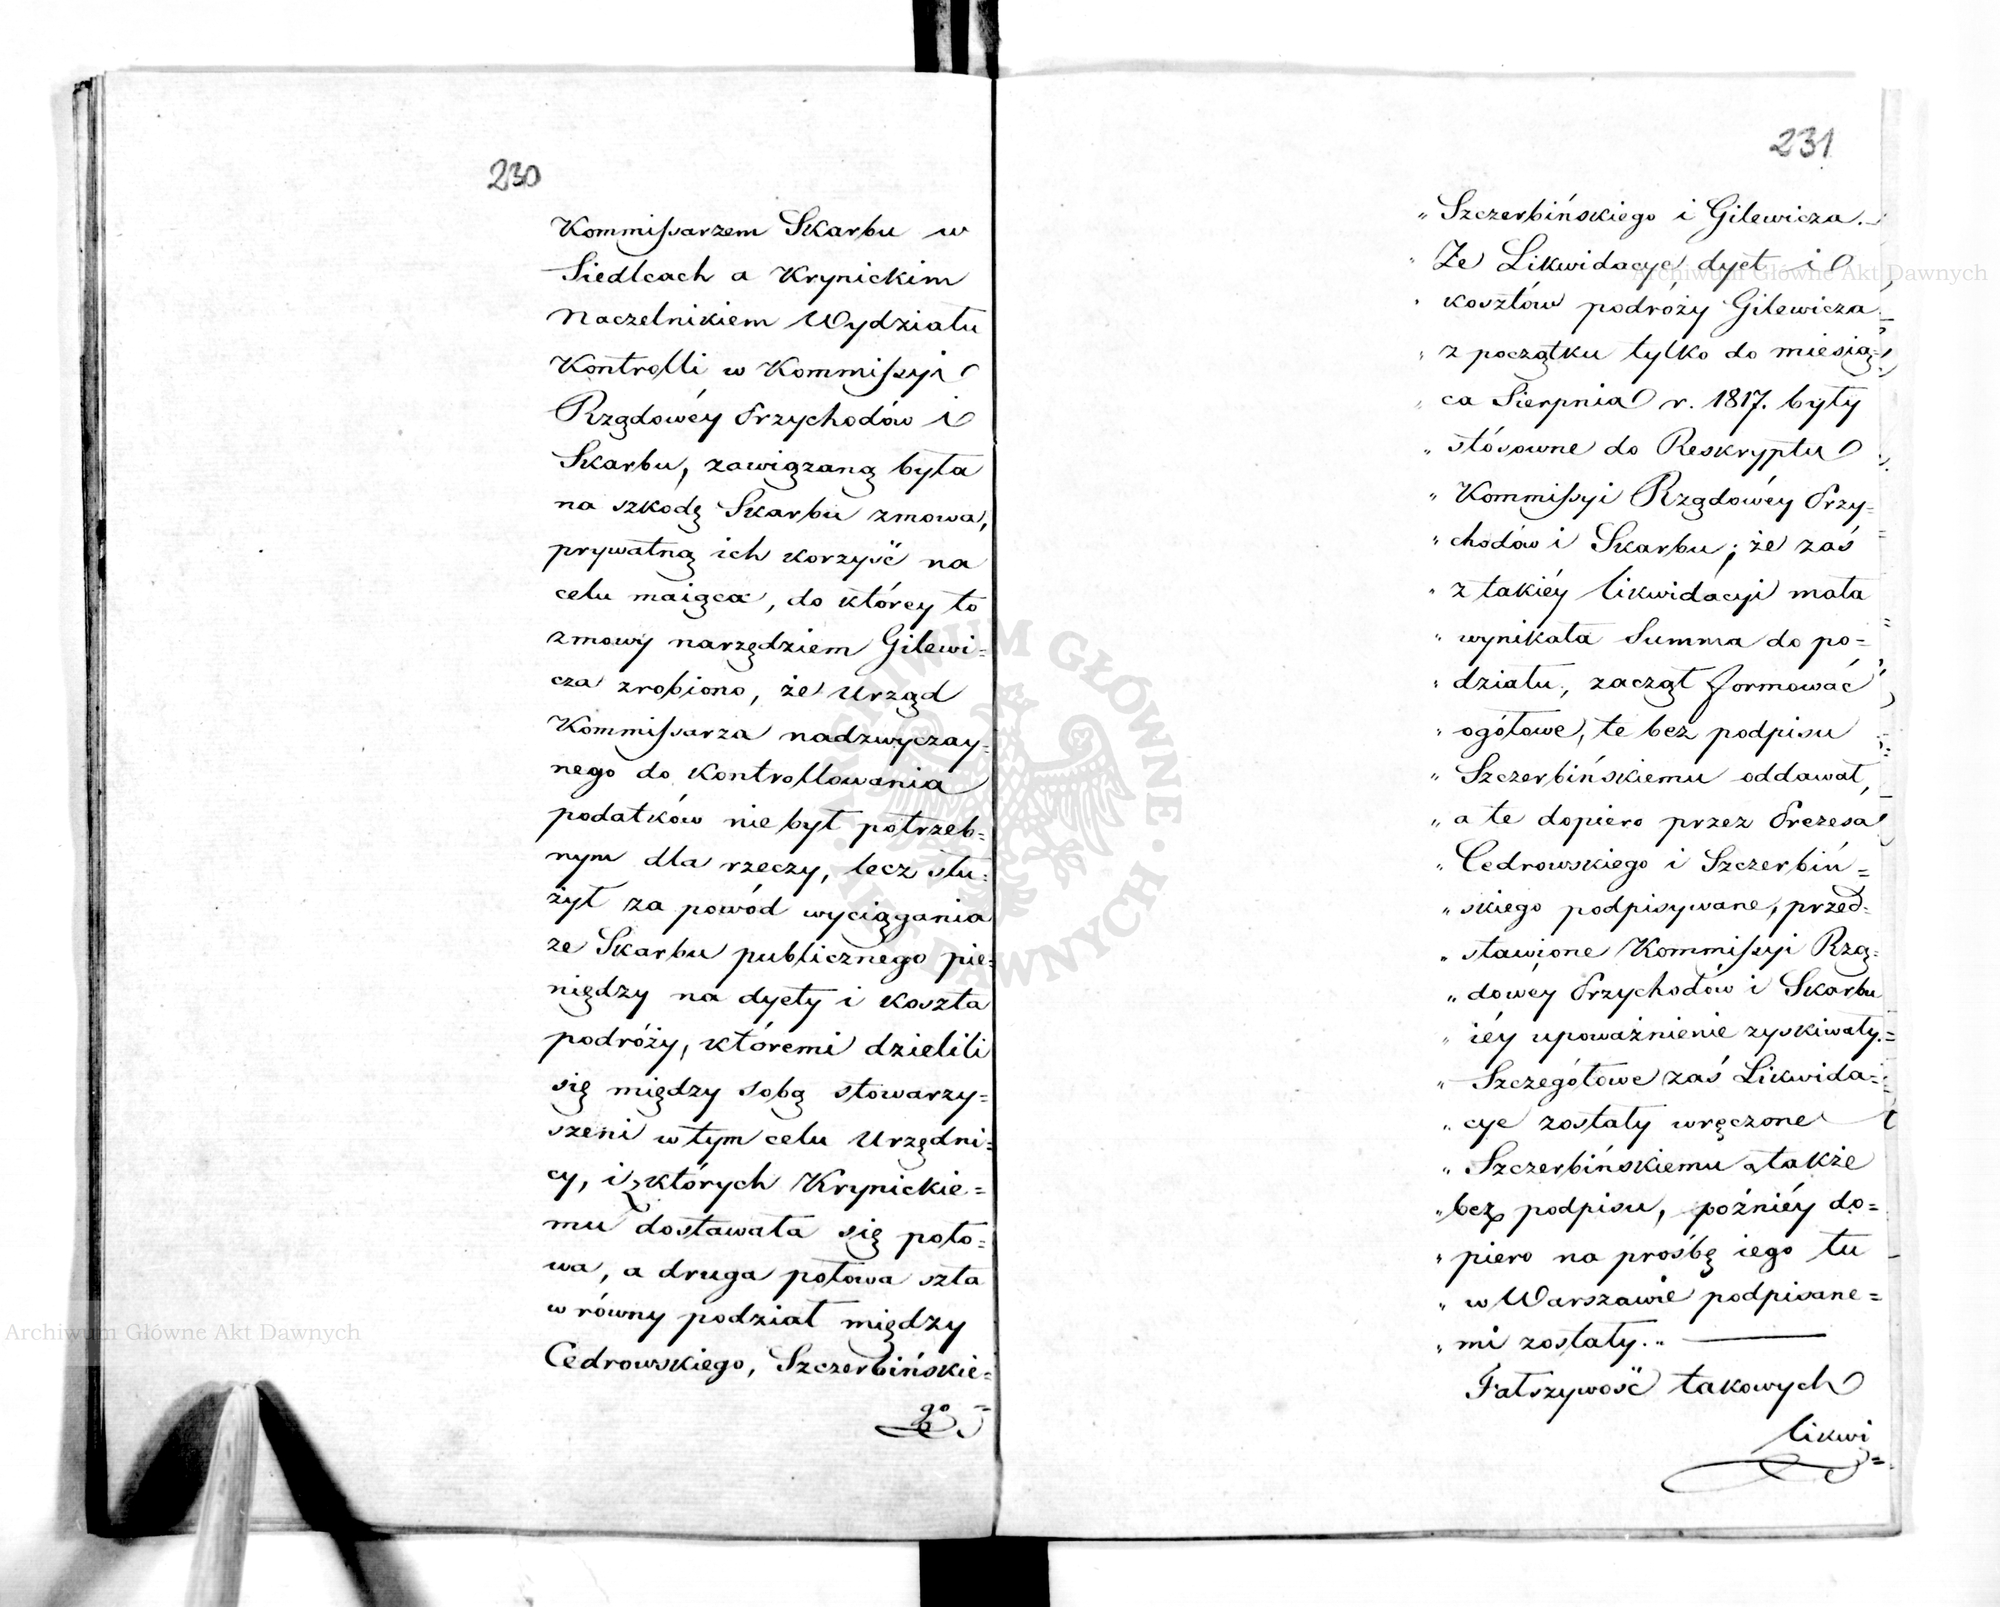 230
Kommissarzem Skarbu w
Siedlcach a Krynickim
Naczelnikiem Wydziału
Kontrolli w Kommissyi
Rządowéy Przychodów i
Skarbu, zawiązaną była
na szkodę Skarbu zmowa,
prywatną ich korzyść na
celu maiąca, do którey to
zmowy narzędziem Gilewi=
cza zrobiono, że Urząd
Kommissarza nadzwyczay=
nego do kontrollowania
podatków nie był potrzeb=
nym dla rzeczy, lecz słu=
żył za powód wyciągania
ze Skarbu publicznego pie=
niędzy na dyety i koszta
podróży, któremi dzielili
się między sobą stowarzy=
szeni w tym celu Urzędni=
cy, i z których Krynickie=
mu dostawała się poło=
wa, a druga połowa szła
w równy podział między
Cedrowskiego, Szczerbińskie=
go
231
„ Szczerbińskiego i Gilewicza.
„ Że Likwidacye dyet i
„ kosztów podróży Gilewicza
„ z początku tylko do miesią=
„ ca Sierpnia r. 1817. były
„ stósowne do Reskryptu
„ Kommissyi Rządowéy Przy=
„ chodów i Skarbu; że zaś
„ z takiéy likwidacyi mała
„ wynikała Summa do po=
„ działu, zaczął formować
„ ogółowe, te bez podpisu
„ Szczerbińskiemu oddawał,
„ a te dopiero przez Prezesa
„ Cedrowskiego i Szczerbiń=
„ skiego podpisywane, przed=
„ stawione Kommissyi Rzą=
„ dowéy Przychodów i Skarbu
„ iéy upoważnienie zyskiwały.=
„ Szczegółowe zaś Likwida=
„ cye zostały wręczone
„ Szczerbińskiemu także
„ bez podpisu, poźniéy do=
„ piero na prośbę iego tu
„ w Warszawie podpisane=
„ mi zostały.. —
Fałszywość takowych
likwi=
Archiwum Główne Akt Dawnych
Archiwum Główne Akt Dawnych
ARCHIWUM GŁÓWNE · AKT DAWNYCH ·